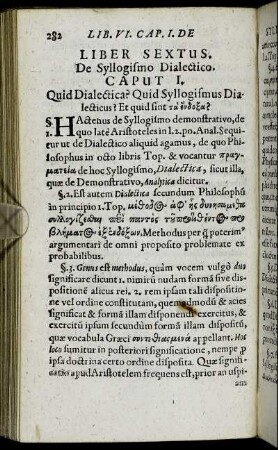 282 LIB. VI. CAP. I. DE
LIBER SEXTUS.
De Syllogismo Dialectico.
CAPUT I.
Quid Dialectica? Quid Syllogismus Dia-
lecticus? Et quid sint τὰ ἔνδοξα?
§. HActenus de Syllogismo demonstrativo, de
1. quo latè Aristoteles in l. 2. po. Anal. Sequi-
tur ut de Dialectico aliquid agamus, de quo Phi-
losophus in octo libris Top. & vocantur πραγ-
ματεία de hoc Syllogismo, Dialectica, sicut illa,
quæ de Demonstrativo, Analytica dicitur.
§. 2. Est autem Dialectica secundum Philosophũ
in principio 1. Top. μέθοδ ἀφ' ἧς δυνησόμεθα
συλλογίζεσθαι περὶ παντὸς προτεθέντ προ-
βλήματ ἐξ ἐνδόξων. Methodus per q̃ poterim
argumentari de omni proposito problemate ex
probabilibus.
§. 3. Genus est methodus, quàm vocem vulgò duo
significare dicunt 1. nimirũ nudam formã sive dis-
positionẽ alicus rei. 2. rem ipsam tali dispositio-
ne vel ordine constitutam, quemadmodũ & acies
significat & formã illam disponendi exercitus, &
exercitũ ipsum secundũm formã illam dispositũ,
quæ vocabula Græci appellant. Hoc
loco sumitur in posteriori significatione, nempe p
ipsa doctrina certo ordine disposita. Quæ signifi-
catio apud Aristotelem frequens est, prior an uspi-
am